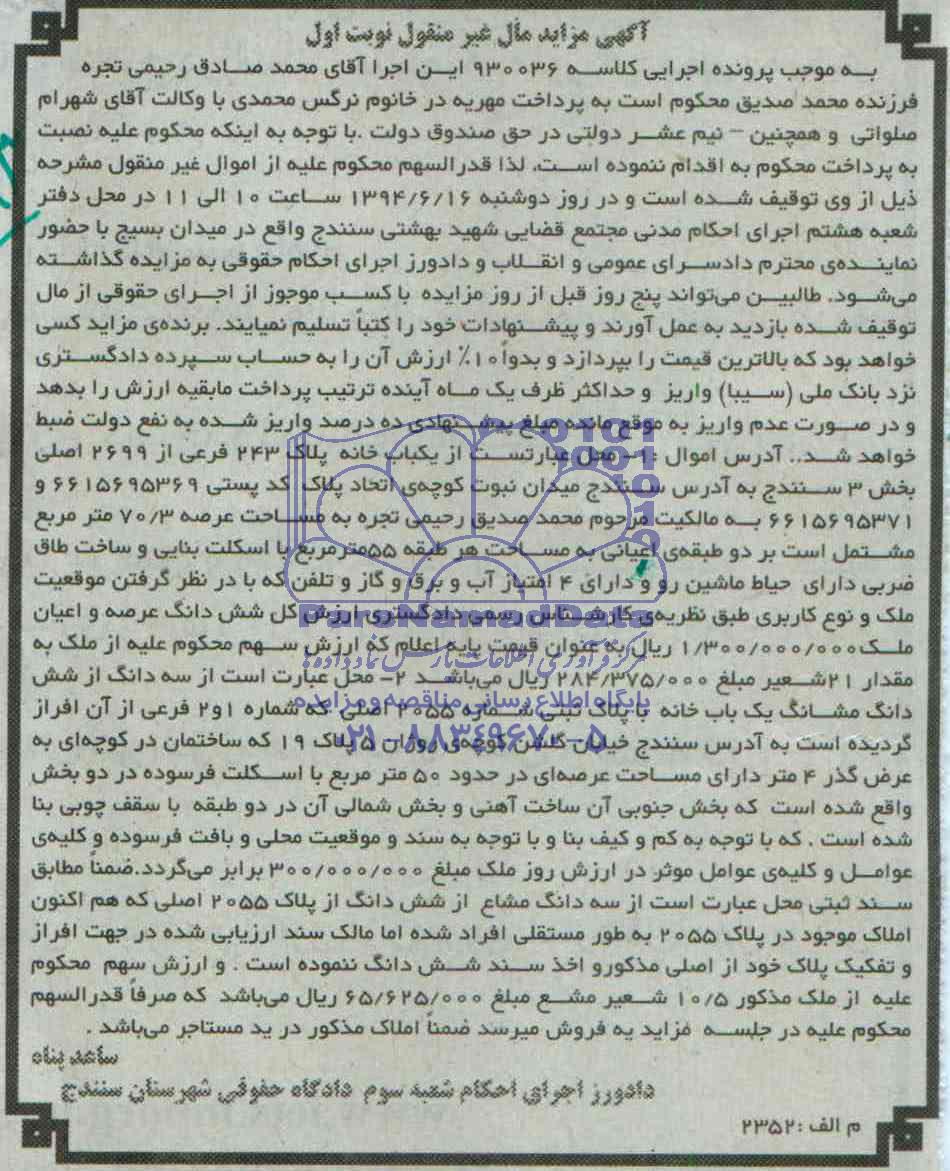 آگهی مزاید مال غیر منقول نوبت اول
به موجب پرونده اجرایی کلاسه ۹۳۰۰۳۶ این اجرا آقای محمد صادق رحیمی تجره
فرزنده محمد صدیق محکوم است به پرداخت مهریه در خانوم نرگس محمدی با وکالت آقای شهرام
صلواتی و همچنین – نیم عشر دولتی در حق صندوق دولت .با توجه به اینکه محکوم علیه نصبت
به پرداخت محکوم به اقدام ننموده است، لذا قدرالسهم محکوم علیه از اموال غیر منقول مشرحه
ذیل از وی توقیف شده است و در روز دوشنبه ۱۳۹۴/۶/۱۶ ساعت ۱۰ الی ۱۱ در محل دفتر
شعبه هشتم اجرای احکام مدنی مجتمع قضایی شهید بهشتی سنندج واقع در میدان بسیج با حضور
نماینده‌ی محترم دادسرای عمومی و انقلاب و دادورز اجرای احکام حقوقی به مزایده گذاشته
می‌شود. طالبین می‌تواند پنج روز قبل از روز مزایده با کسب موجوز از اجرای حقوقی از مال
توقیف شده بازدید به عمل آورند و پیشنهادات خود را کتباً تسلیم نمیایند. برنده‌ی مزاید کسی
خواهد بود که بالاترین قیمت را بپردازد و بدواً ۱۰٪ ارزش آن را به حساب سپرده دادگستری
نزد بانک ملی (سیبا) واریز و حداکثر ظرف یک ماه آینده ترتیب پرداخت مابقیه ارزش را بدهد
و در صورت عدم واریز به موقع مانده مبلغ پیشنهادی ده درصد واریز شده به نفع دولت ضبط
خواهد شد.. آدرس اموال :۱- محل عبارتست از یکباب خانه پلاک ۲۴۳ فرعی از ۲۶۹۹ اصلی
بخش ۳ سنندج به آدرس سنندج میدان نبوت کوچه‌ی اتحاد پلاک کد پستی ۶۶۱۵۶۹۵۳۶۹ و
۶۶۱۵۶۹۵۳۷۱ به مالکیت مرحوم محمد صدیق رحیمی تجره به مساحت عرصه ۷۰/۳ متر مربع
مشتمل است بر دو طبقه‌ی اعیانی به مساحت هر طبقه ۵۵مترمربع با اسکلت بنایی و ساخت طاق
ضربی دارای حیاط ماشین رو و دارای ۴ امتیاز آب و برق و گاز و تلفن که با در نظر گرفتن موقعیت
ملک و نوع کاربری طبق نظریه‌ی کارشناس رسمی دادگستری ارزش کل شش دانگ عرصه و اعیان
ملک ۱/۳۰۰/۰۰۰/۰۰۰ ریال به عنوان قیمت پایه اعلام که ارزش سهم محکوم علیه از ملک به
مقدار ۲۱شعیر مبلغ ۲۸۴/۳۷۵/۰۰۰ ریال می‌باشد ۲- محل عبارت است از سه دانگ از شش
دانگ مشانگ یک باب خانه با پلاک ثبتی شماره ۲۰۵۵ اصلی که شماره ۱و۲ فرعی از آن افراز
گردیده است به آدرس سنندج خیابان گلشن کوچه‌ی ۵ پلاک ۱۹ که ساختمان در کوچه‌ای به
عرض گذر ۴ متر دارای مساحت عرصه‌ای در حدود ۵۰ متر مربع با اسکلت فرسوده در دو بخش
واقع شده است که بخش جنوبی آن ساخت آهنی و بخش شمالی آن در دو طبقه با سقف چوبی بنا
شده است . که با توجه به کم و کیف بنا و با توجه به سند و موقعیت محلی و بافت فرسوده و کلیه‌ی
عوامل و کلیه‌ی عوامل موثر در ارزش روز ملک مبلغ ۳۰۰/۰۰۰/۰۰۰ برابر می‌گردد.ضمناً مطابق
سند ثبتی محل عبارت است از سه دانگ مشاع از شش دانگ از پلاک ۲۰۵۵ اصلی که هم اکنون
املاک موجود در پلاک ۲۰۵۵ به طور مستقلی افراد شده اما مالک سند ارزیابی شده در جهت افراز
و تفکیک پلاک خود از اصلی مذکورو اخذ سند شش دانگ ننموده است . و ارزش سهم محکوم
علیه از ملک مذکور ۱۰/۵ شعیر مشع مبلغ ۶۵/۶۲۵/۰۰۰ ریال می‌باشد که صرفاً قدرالسهم
محکوم علیه در جلسه مزاید به فروش میرسد ضمناً املاک مذکور در ید مستاجر می‌باشد .
ساعد پناه
دادورز اجرای احکام شعبه سوم دادگاه حقوقی شهرستان سنندج
م الف :۲۳۵۲
ParsNamadData
مرکز فرآوری اطلاعات پارس نماد داده‌ها
پایگاه اطلاع رسانی مناقصه و مزایده
۰۲۱-۸۸۳۴۹۶۷۰-۵